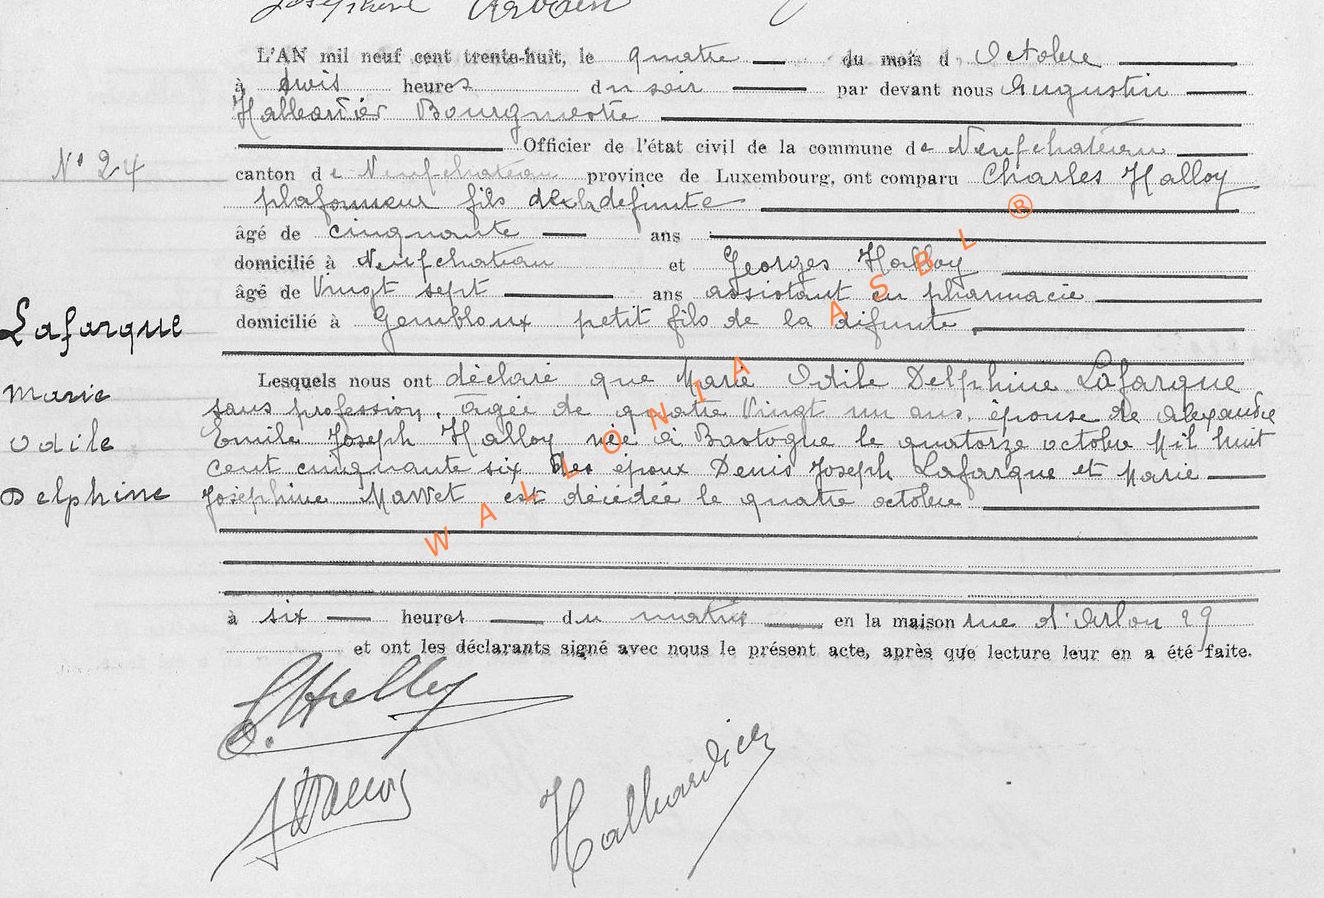 Joséphine
L'AN mil neuf cent trente-huit, le quatre du mois d Octobre
à trois heures du soir par devant nous Augustin
Halbardier Bourgmestre
Officier de l'état civil de la commune de Neufchâteau
N° 24
canton de Neufchâteau province de Luxembourg, ont comparu Charles Halloy
plafonneur fils de la défunte
âgé de cinquante ans
domicilié à Neufchâteau et Georges Halloy
âgé de Vingt sept ans assistant en pharmacie
domicilié à Gembloux petit fils de la défunte
Lafarque
Marie
Odile
Delphine
Lesquels nous ont déclaré que Marie Odile Delphine Lafarque
sans profession, âgée de quatre Vingt un ans, épouse de Alexandre
Emile Joseph Halloy née à Bastogne le quatorze octobre Mil huit
cent cinquante six des époux Denis Joseph Lafarque et Marie
Joséphine est décédée le quatre octobre
à six heures du matin en la maison rue d'Arlon 29
et ont les déclarants signé avec nous le présent acte, après que lecture leur en a été faite.
C. Halloy
Halbardier
WALLONIA ASBL ®